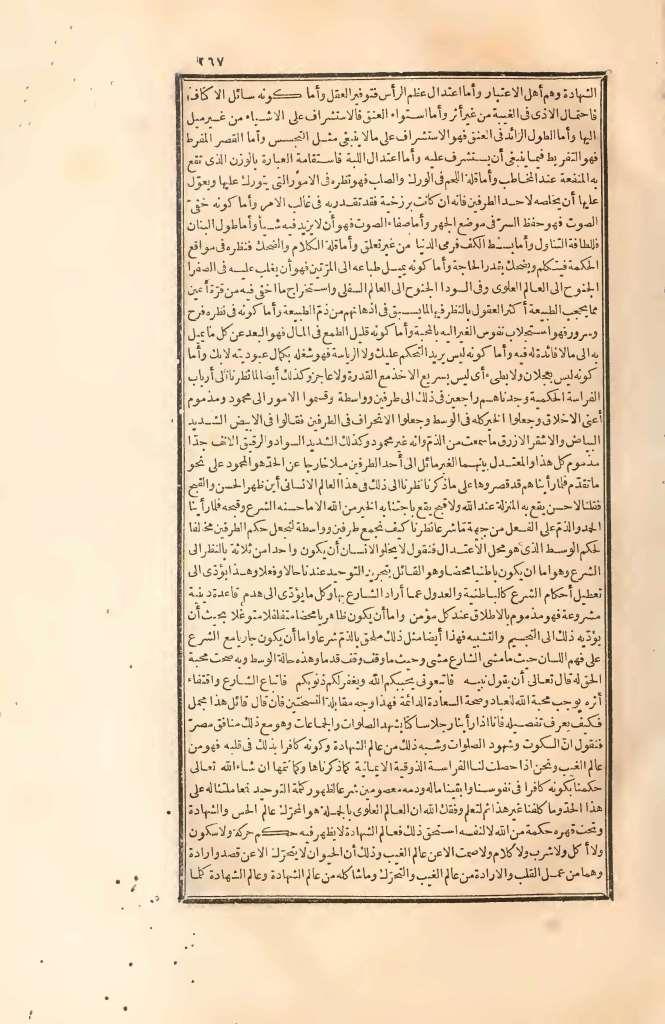 ٢٦٧
الشهادة وهم أهل الاعتبار وأما اعتدال عظم الرأس فتوفير العقل وأما كونه سائل الاكتاف
فاحتمال الاذى فى الغيبة من غير أثر وأما استواء العنق فالاستشراف على الاشياء من غير ميل
اليها وأما الطول الزائد فى العنق فهو الاستشراف على ما لا ينبغى مثل التجسس وأما القصر المفرط
فهو التفريط فيما ينبغى أن يستشرف عليه وأما اعتدال اللبة فاستقامة العبارة بالوزن الذى تقع
به المنفعة عند المخاطب وأما قلة اللحم فى الورك والصلب فهو نظره فى الامور التى يتورك عليها ويعوّل
عليها أن يخلصه لاحد الطرفين فانه ان كانت برزخية فقد تغدر به فى غالب الامر وأما كونه خفىّ
الصوت فهو حفظ السرّ فى موضع الجهر وأما صفاء الصوت فهو أن لا يزيد فيه شيأ وأما طول البنان
فللطافة التناول وأما بسط الكف فرمى الدنيا من غير تعلق وأما قلة الكلام والضحك فنظره فى مواقع
الحكمة فيتكلم ويضحك بقدر الحاجة وأما كونه يميل طباعه الى المرّتين فهو أن يغلب عليه فى الصفرا
الجنوح الى العالم العلوى وفى السودا الجنوح الى العالم السفلى واستخراج ما اخفى فيه من قرّة أعين
مما يحجب الطبيعة أكثر العقول بالنظر فيها لما يسبق فى اذهانهم من ذمّ الطبيعة وأما كونه فى نظره فرح
وسرور فهو استجلاب نفوس الغير اليه بالمحبة وأما كونه قليل الطمع فى المال فهو البعد عن كل ما يميل
به الى ما لا فائدة له فيه وأما كونه ليس يريد التحكم عليك ولا الرياسة فهو شغله بكمال عبوديته لا بك وأما
كونه ليس بعجلان ولا بطىء أى ليس بسريع الاخذ مع القدرة ولا عاجز وكذلك أيضا لما نظرنا الى أرباب
الفراسة الحكمية وجدناهم راجعين فى ذلك الى طرفين وواسطة وقسموا الامور الى محمود ومذموم
أعنى الاخلاق وجعلوا الخير كله فى الوسط وجعلوا الانحراف فى الطرفين فقالوا فى الابيض الشديد
البياض والاشقر الازرق ما سمعت من الذم وانه غير محمود وكذلك الشديد السواد والرقيق الانف جدّا
مذموم كل هذا والمعتدل بينهما الغير مائل الى أحد الطرفين ميلا خارجا عن الحدّ هو المحمود على نحو
ما تقدّم فلما رأيناهم قد قصروها على ما ذكرنا نظرنا الى ذلك فى هذا العالم الانسانى أين ظهر الحسن والقبح
فقلنا لا حسن يقع به المنزلة عند الله ولا قبح يقع باجتنابه الخير من الله الا ما حسنه الشرع وقبحه فلما رأينا
الحمد والذم على الفعل من جهة ما شرعا نظرنا كيف نجمع طرفين وواسطة لنجعل حكم الطرفين مخالفا
لحكم الوسط الذى هو محل الاعتدال فنقول لا يخلو الانسان أن يكون واحدا من ثلاثة بالنظر الى
الشرع وهو اما ان يكون باطنيا محضا وهو القائل بتجريد التوحيد عندنا حالا وفعلا وهذا يؤدى الى
تعطيل أحكام الشرع كالباطنية والعدول عما أراد الشارع بها وكل ما يؤدى الى هدم قاعدة دينية
مشروعة فهو مذموم بالاطلاق عند كل مؤمن واما أن يكون ظاهريا محضا متغلغلا متوغلا بحيث أن
يؤدّيه ذلك الى التجسيم والتشبيه فهذا أيضا مثل ذلك ملحق بالذم شرعا واما أن يكون جاريا مع الشرع
على فهم اللسان حيث ما مشى الشارع مشى وحيث ما وقف وقف قدما وهذه حالة الوسط وبه صحت محبة
الحق له قال تعالى أن يقول نبيه فاتبعونى يحببكم الله ويغفر لكم ذنوبكم فاتباع الشارع واقتفاء
أثره يوجب محبة الله للعباد وصحة السعادة الدائمة فهذا وجه مقابلة النسختين فان قال قائل هذا مجمل
فكيف يعرف تفصيله فانا اذا رأينا رجلا ساكنا يشهد الصلوات والجماعات وهو مع ذلك منافق مصرّ
فنقول انّ السكوت وشهود الصلوات وشبه ذلك من عالم الشهادة وكونه كافرا بذلك فى قلبه فهو من
عالم الغيب ونحن اذا حصلت لنا الفراسة الذوقية الايمانية كما ذكرناها وكما نتمها ان شاء الله تعالى
حكمنا بكونه كافرا فى نفوسنا وابقينا ماله ودمه معصومين شرعا لظهور كلمة التوحيد فما ملتناله على
هذا الحدّ وما كلفنا غير هذا ثم لتعلم وفقك الله ان العالم العلوى بالجملة هو المحرّك عالم الحس والشهادة
وتحت قهره حكمة من الله لا لنفسه استحق ذلك فعالم الشهادة لا يظهر فيه حكم حركة ولا سكون
ولا أكل ولا شرب ولا كلام ولا صمت الا عن عالم الغيب وذلك أن الحيوان لا يتحرّك الا عن قصد وارادة
وهما من عمل القلب والارادة من عالم الغيب والتحرّك وما شاكله من عالم الشهادة وعالم الشهادة كلما